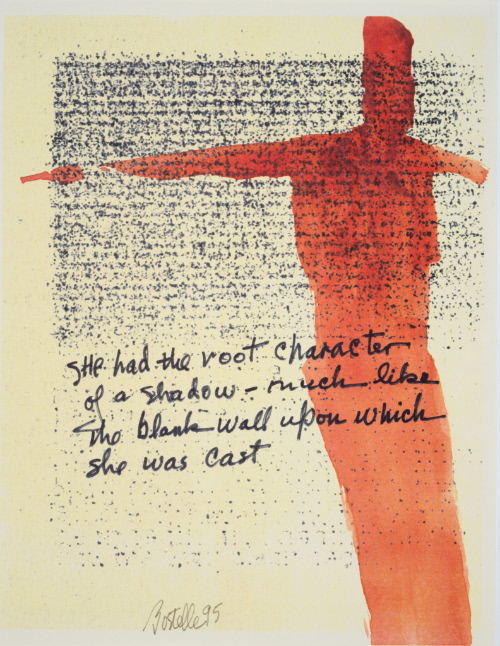 sHe had the root character
of a shadow - much like
the blank wall upon which
she was cast
Bostelle 95